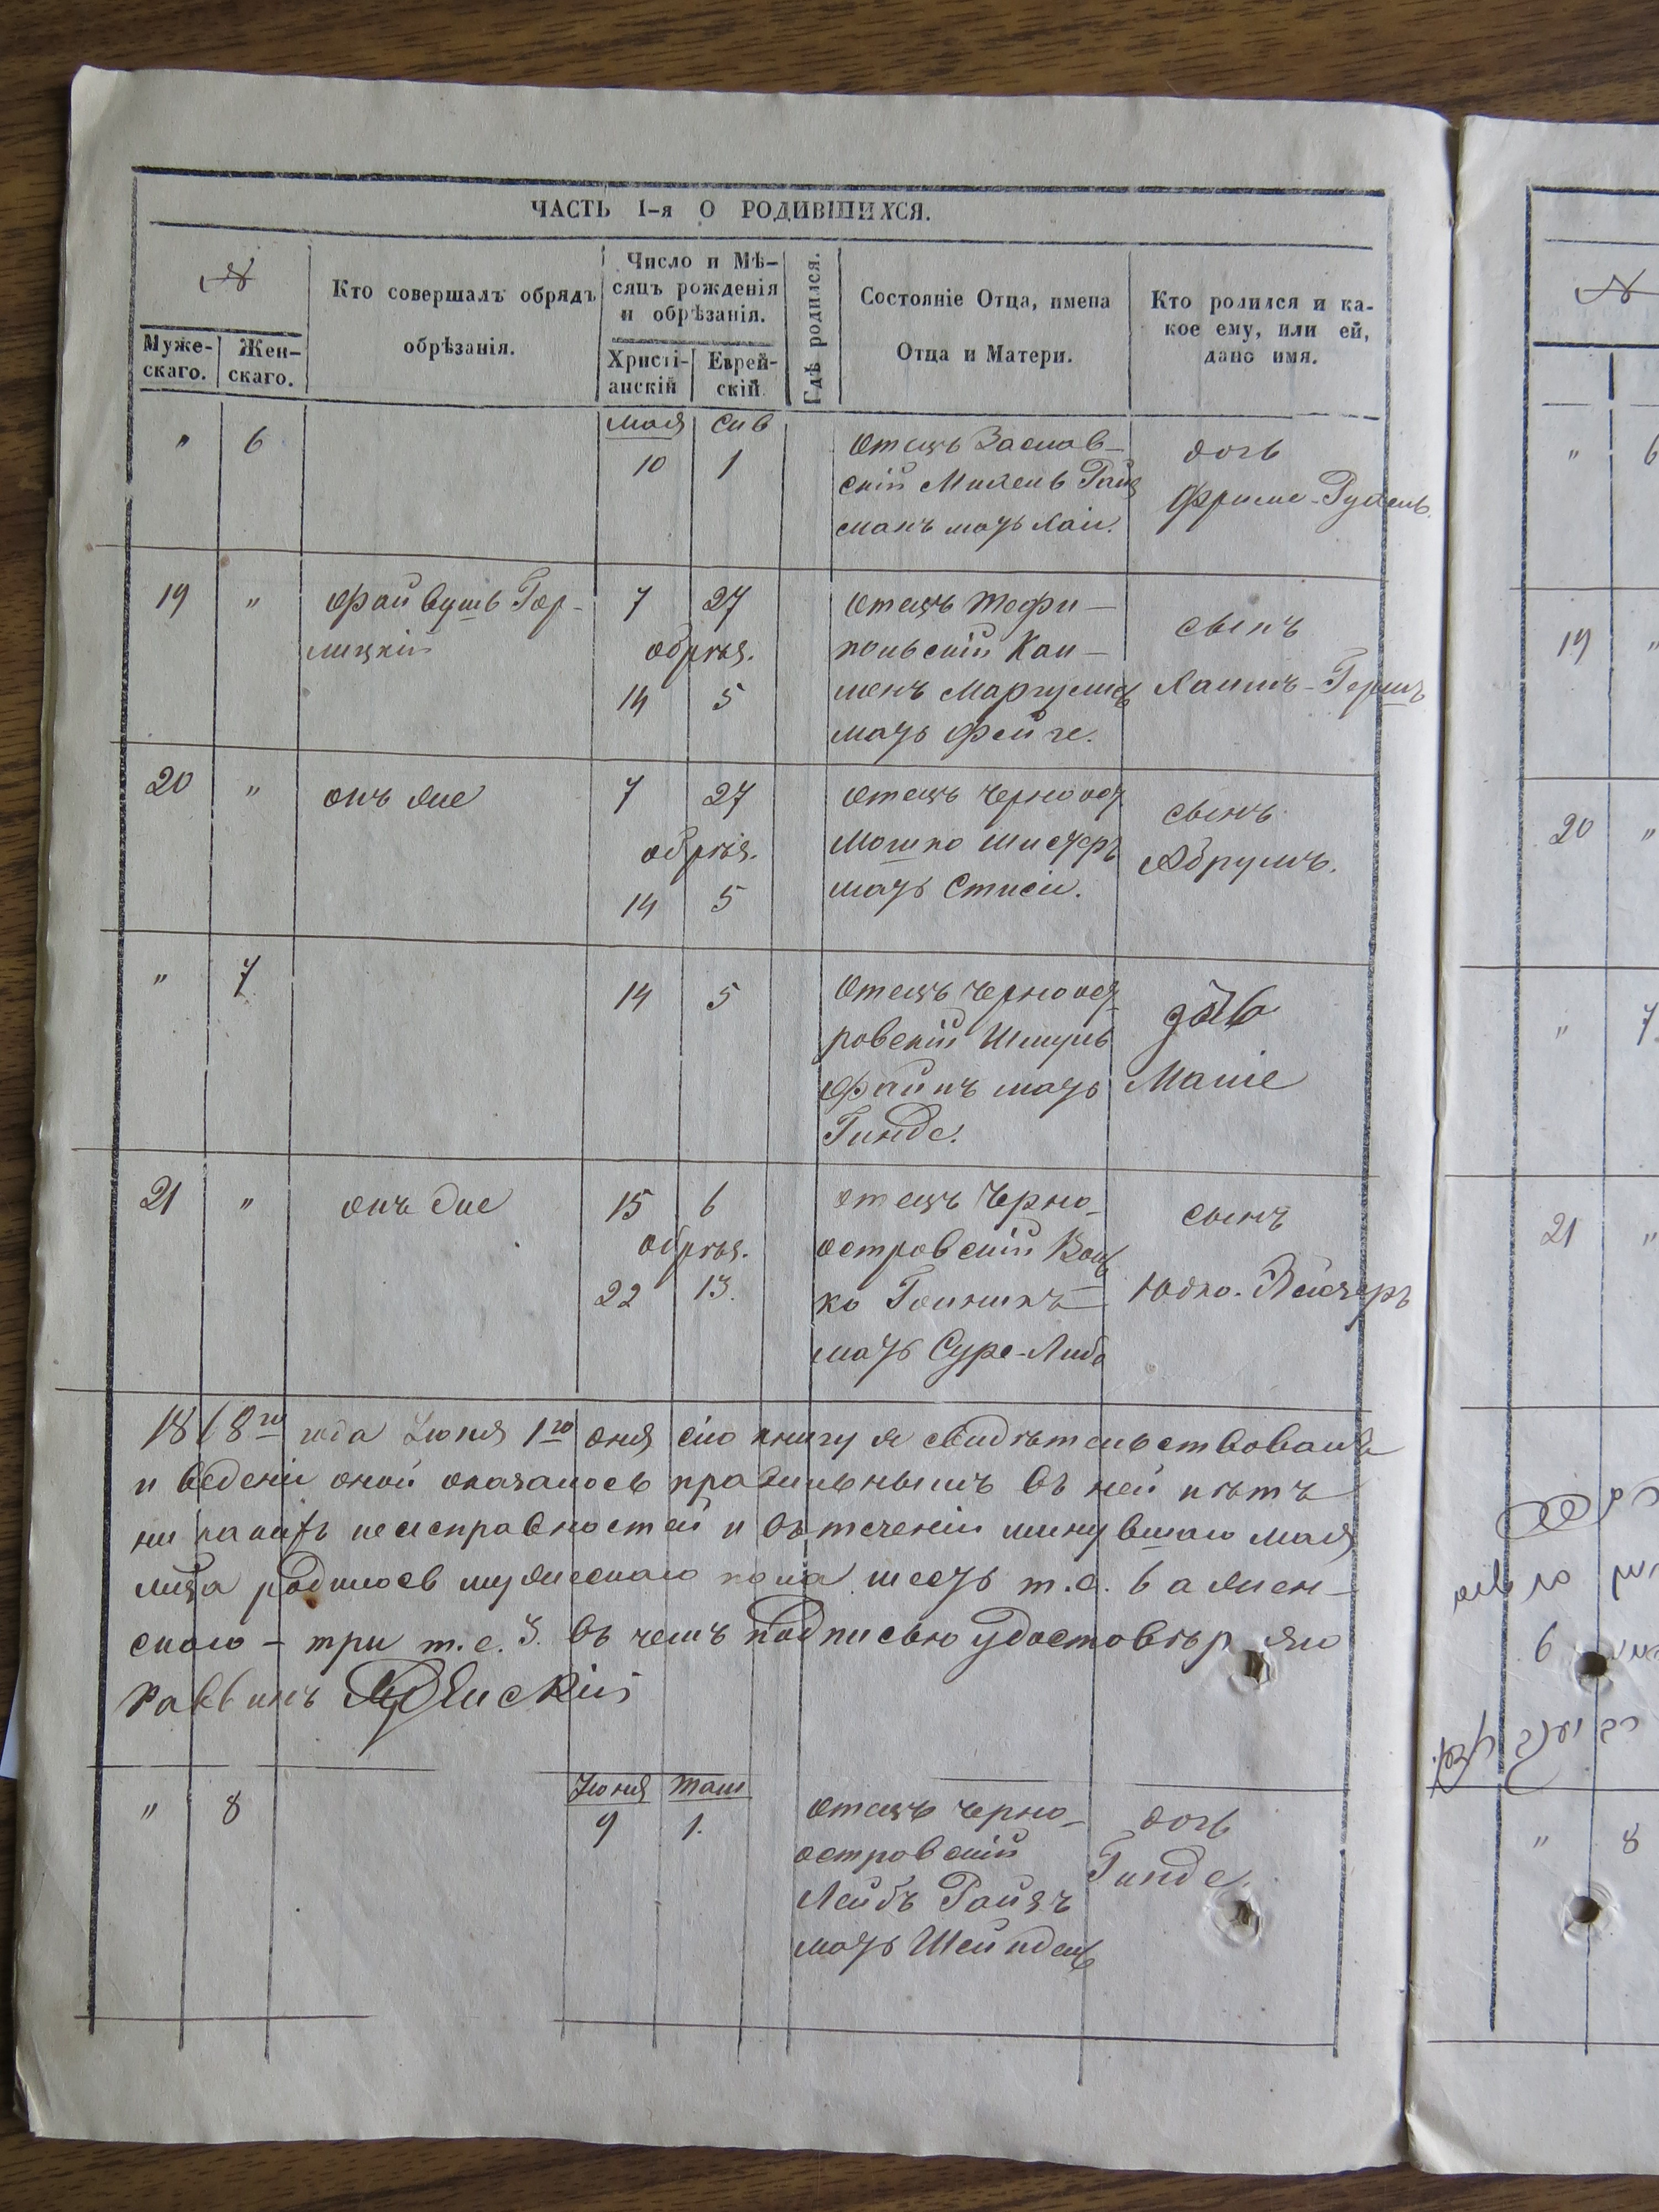 ЧАСТЬ I-я О РОДИВШИХСЯ.
№
Муже-
скаго.
Жен-
скаго.
Кто совершалъ обрядъ
обрѣзанія.
Число и Мѣ-
сяцъ рожденія
и обрѣзанія.
Христі-
анскій
Еврей-
скій
Гдѣ родился.
Состояніе Отца, имена
Отца и Матери.
Кто родился и ка-
кое ему, или ей,
дано имя.
" 6
мая Сив
10 1
Отецъ Заслав-
скій Михель
манъ мать Хаи.
дочь
Фриме-Рухель.
19 "
Файвушъ Гор-
лицкій
7 27
обрѣз.
14 5
отецъ Теофи-
польскій Кал-
менъ Маргулисъ
мать Фейге.
сынъ
Хаимъ-Гершъ
20 "
онъ же
7 27
обрѣз.
14 5
отецъ Черноос
Мошко
мать Стиси.
сынъ
Абрумъ.
" 7
14 5
Отецъ Черноост
ровскій Шмуль
Файнъ мать
Гинде.
дочь
Маліе
21 "
онъ же
15 6
обрѣз.
22 13.
отецъ Черно-
островскій Вол
ко
мать Суре-Либа
сынъ
Юдко.
1868го года Іюня 1го дня сію книгу я свидѣтельствовалъ
и ведені оной оказалось правильнымъ въ ней нѣтъ
ни какихъ неисправностей и въ теченіи минувшаго мая
м-ца родилось мужескаго пола шесть т.е. 6 а жен-
скаго - три т.е. 3. въ чемъ подписью удостовѣряю
Раввинъ
" 8
Іюня Там
9 1.
отецъ Черно-
островскій
Лейбъ Райзъ
мать Шейндель
дочь
Гинде.
№
" 6
19 "
20 "
" 7.
21 "
" 8